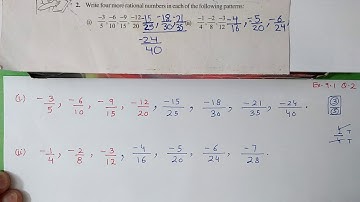 2. Write four more rational numbers in each of the following patterns:
(i) -3/5, -6/10, -9/15, -12/20, -15/25, -18/30, -21/35 (ii) -1/4, -2/8, -3/12, -4/16, -5/20, -6/24
-24/40
Ex-9.1 Q-2
(i) -3/5, -6/10, -9/15, -12/20, -15/25, -18/30, -21/35, -24/40.
(ii) -1/4, -2/8, -3/12, -4/16, -5/20, -6/24, -7/28.